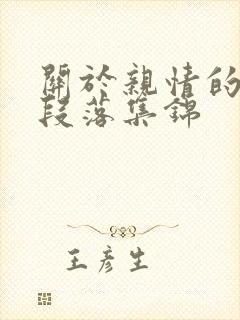 關於親情的
段落集錦
王彥生